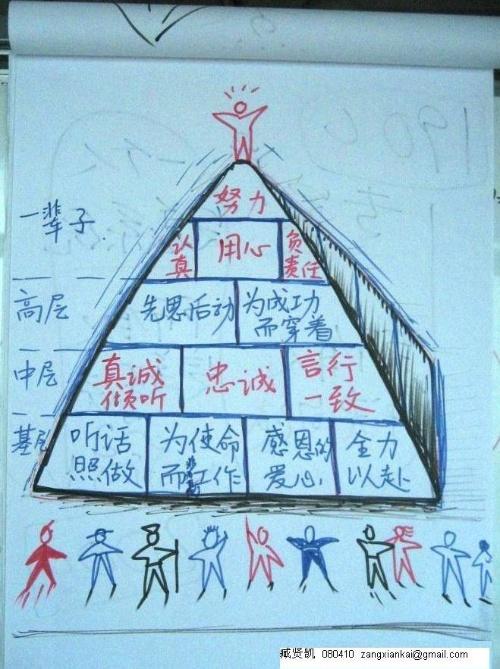 努力
一辈子
认真
用心
负责任
高层
先思后动
为成功
而穿着
中层
真诚
倾听
忠诚
言行
一致
基层
听话
照做
为使命
而工作
感恩的
爱心
全力
以赴
臧贤凯 080410 zangxiankai@gmail.com